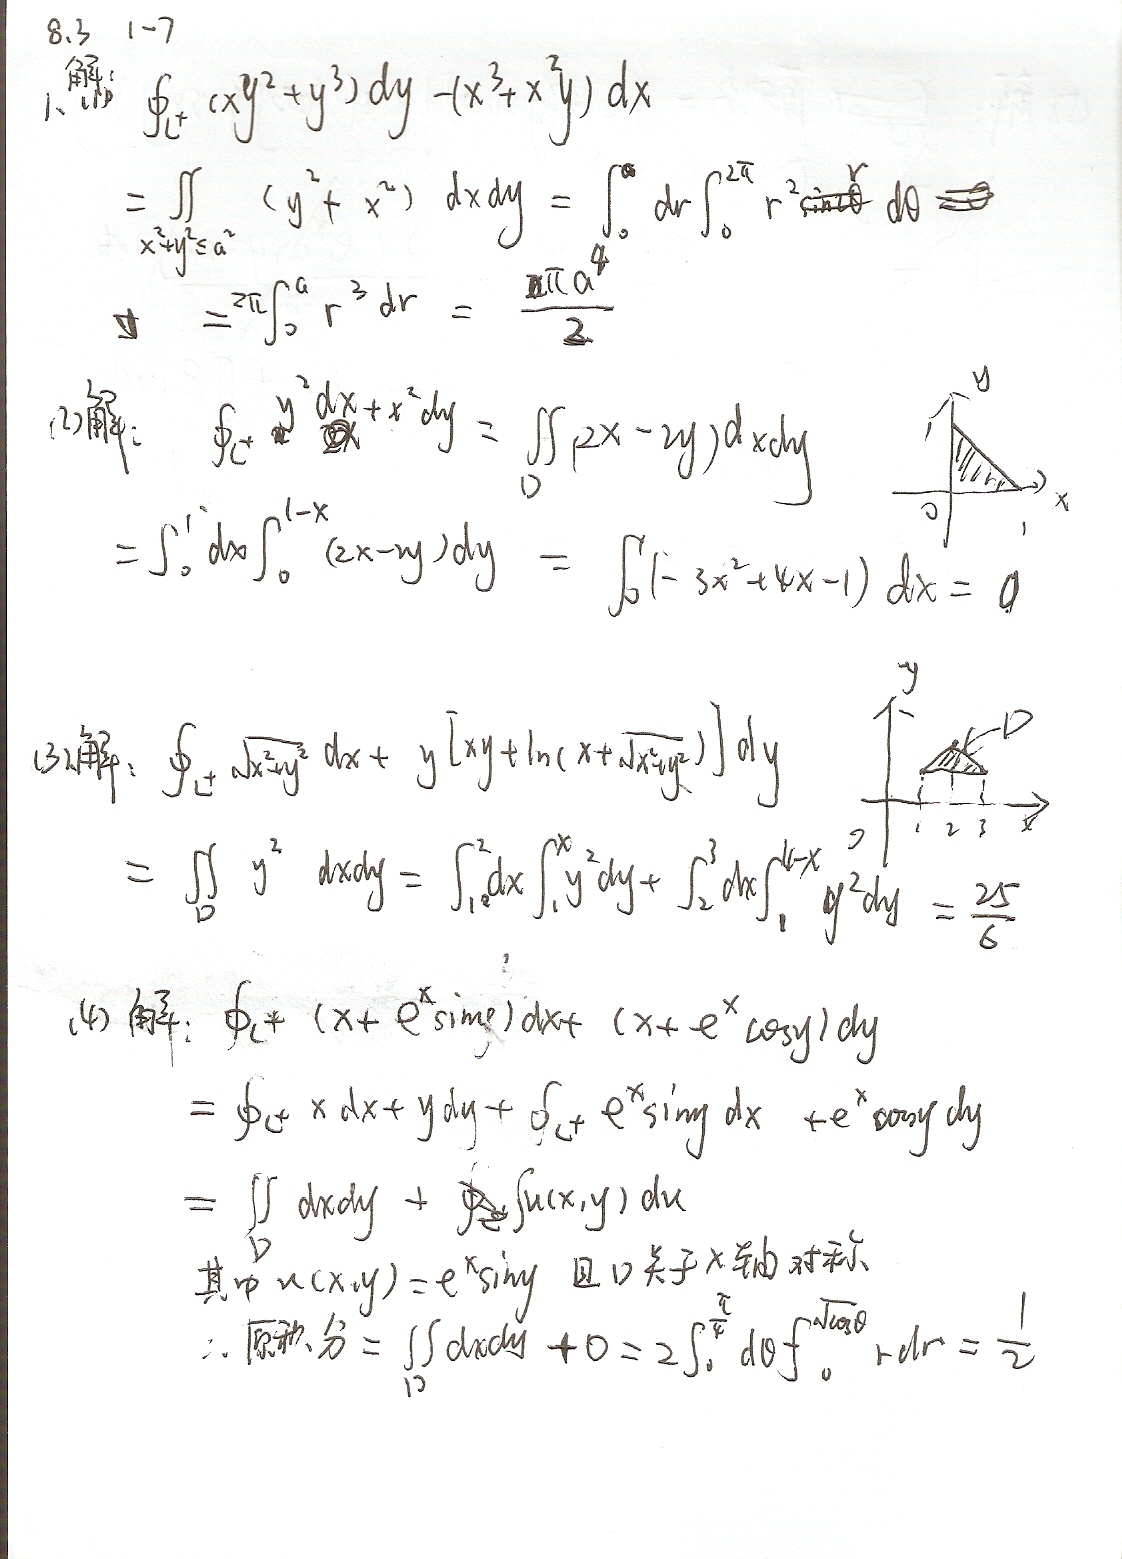 8.3 1-7
1、解:(1) ∮_{L+} (xy²+y³)dy -(x³+x²y)dx
= ∬_{x²+y²≤a²} (y²+x²) dxdy = ∫₀^a dr∫₀^{2π} r² r dθ
= 2π∫₀^a r³ dr = πa⁴/2
(2)解: ∮_{L+} y²dx+x²dy = ∬_D (2x-2y)dxdy
y 1 0 1 x
= ∫₀¹dx∫₀^{1-x} (2x-2y)dy = ∫₀(-3x²+4x-1) dx = 0
(3)解: ∮_{L+} √(x²+y²) dx + y[xy+ln(x+√(x²+y²))]dy
y D 0 1 2 3 x
= ∬_D y² dxdy = ∫₁²dx∫₁^x y²dy + ∫₂³dx∫₁^{4-x} y²dy = 25/6
(4) 解: ∮_{L+} (x+e^x siny)dx+ (x+e^x cosy)dy
= ∮_{L+} x dx+ydy+∮_{L+} e^x siny dx +e^x cosy dy
= ∬_D dxdy + ∫u(x,y)du
其中 u(x,y)=e^x siny 且D关于x轴对称
∴原积分= ∬_D dxdy +0=2∫₀^{π/4} dθ∫₀^{√cosθ} rdr = 1/2